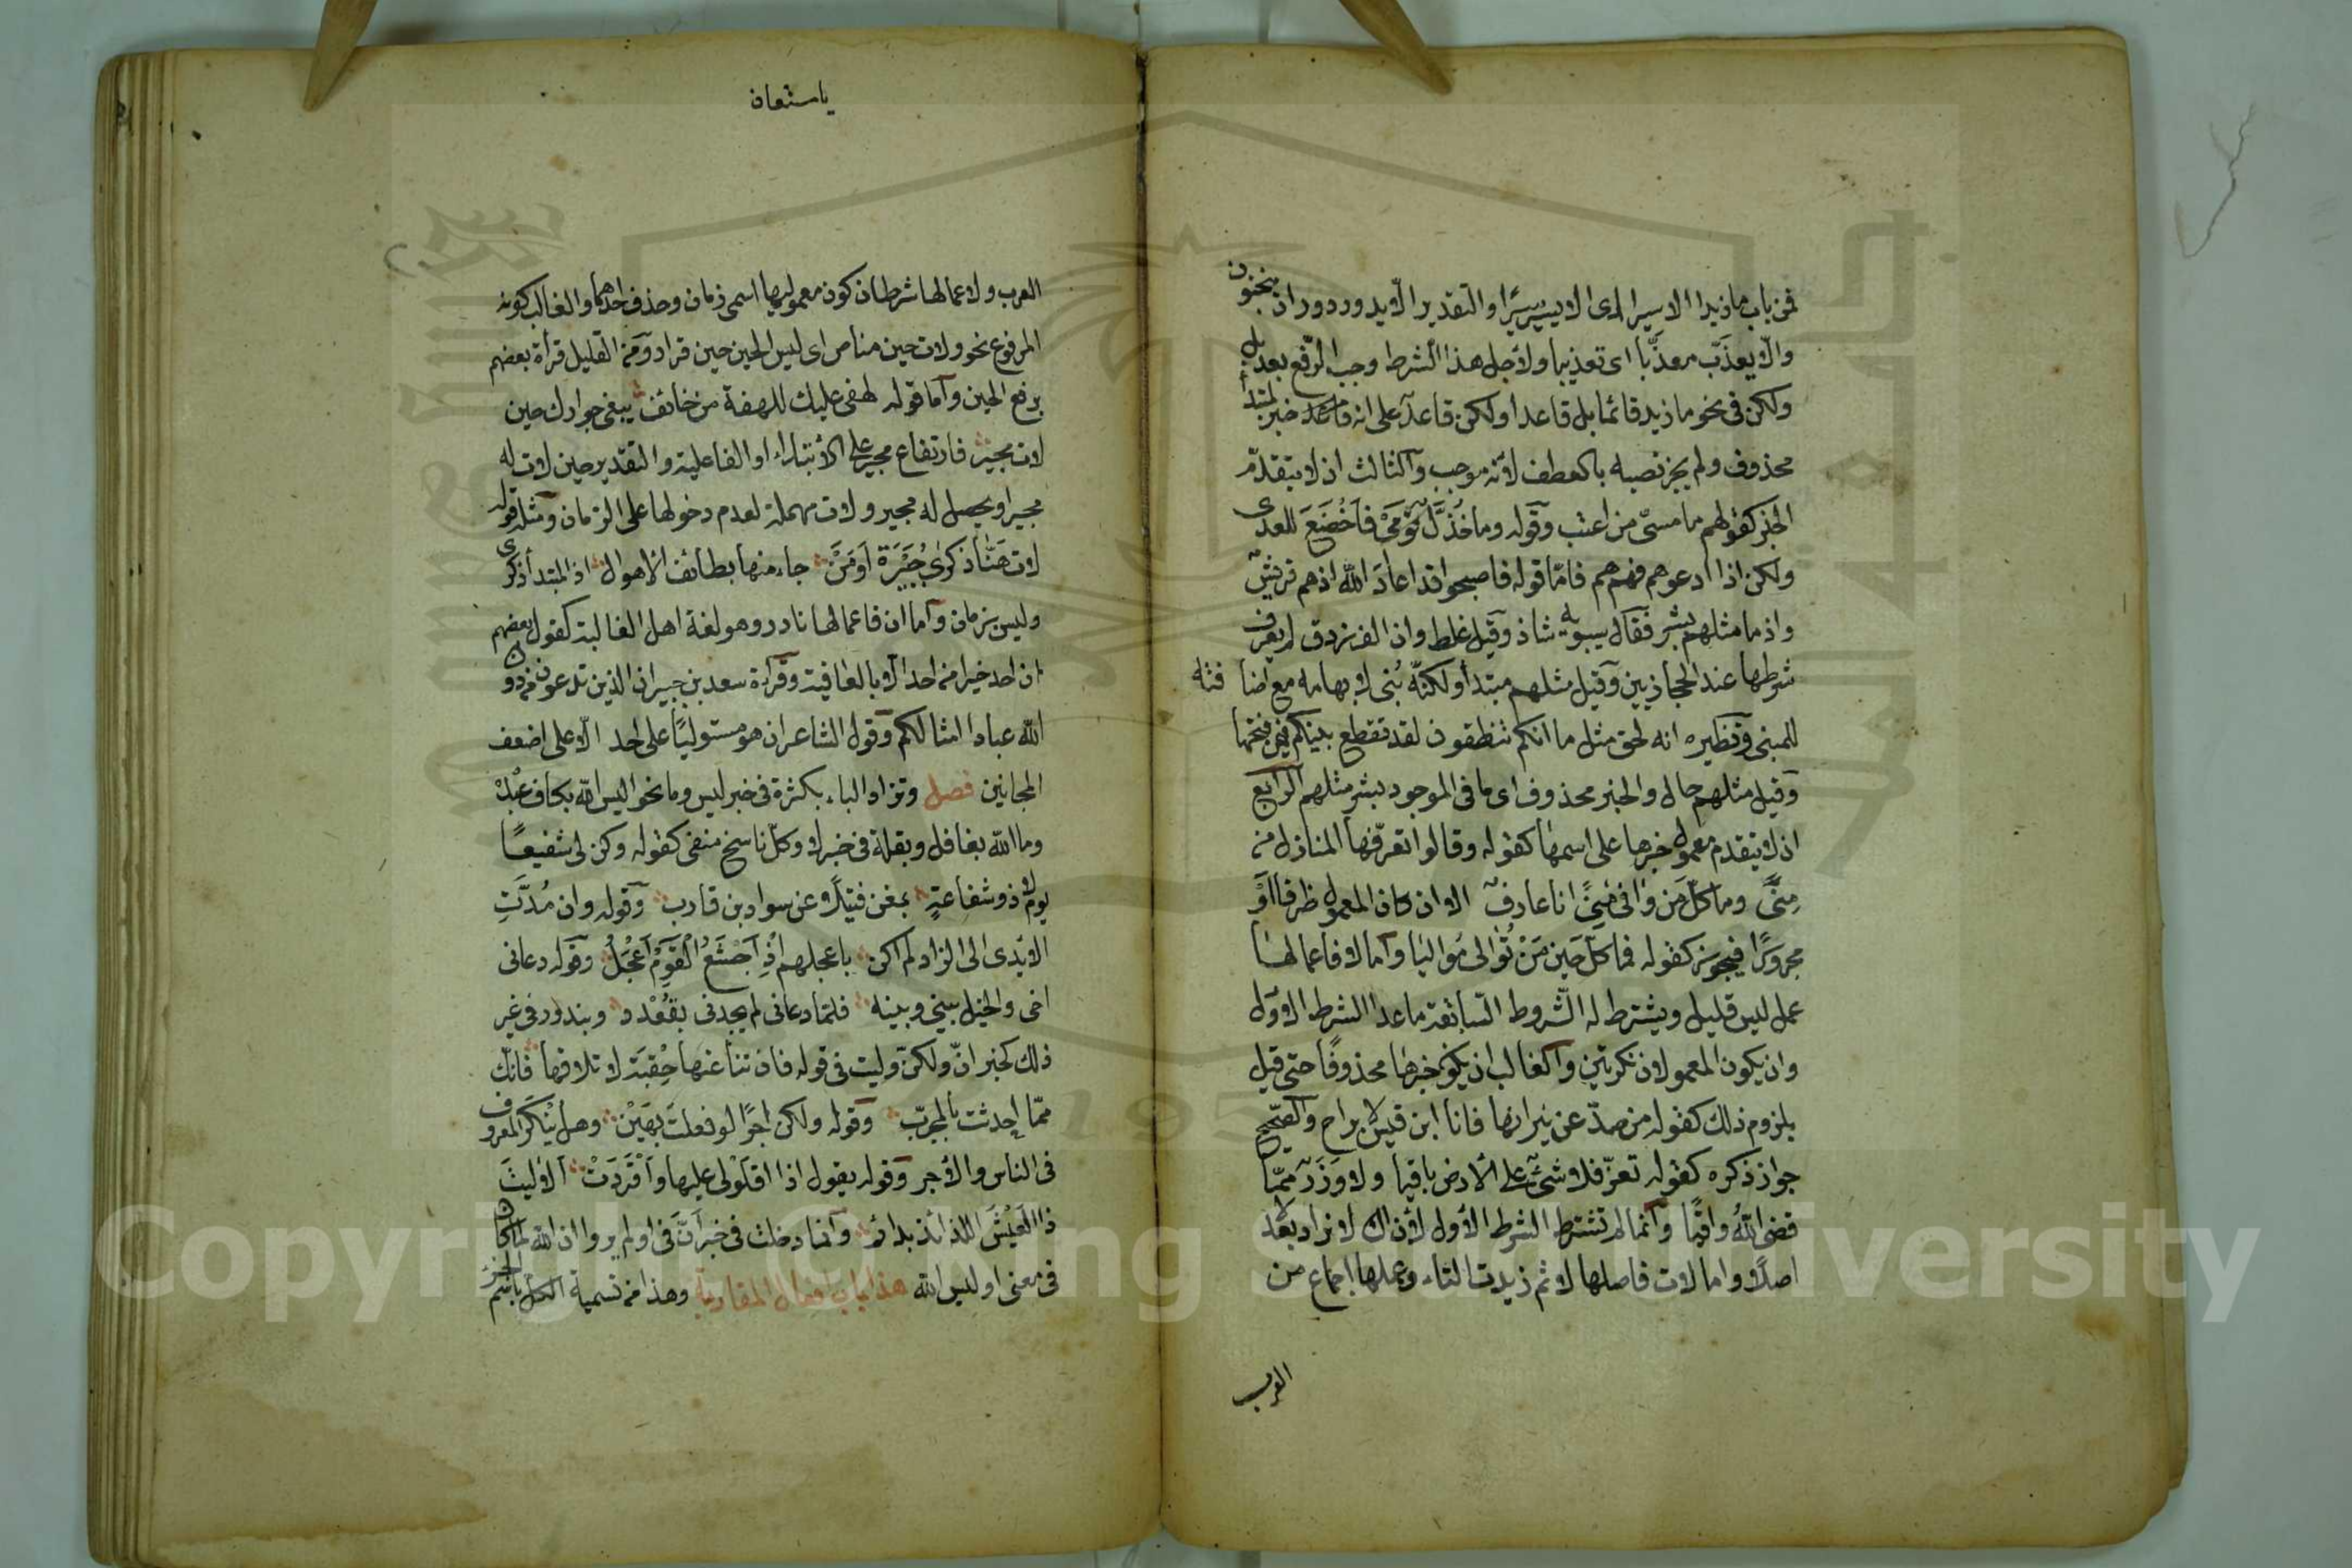 فمن باب ما زيد الا سيرا اى الا يسير سيرًا والتقدير الّا يدور دوران منجنون
والّا يعذّب معذّبا اى تعذيبا ولأجل هذا الشرط وجب الرّفع بعد بل
ولكن فى نحو ما زيد قائما بل قاعد او لكن قاعد على انه خبر لمبتدأ
محذوف ولم يجز نصبه بالعطف لأنه موجب والثالث ان لا يتقدّم
الخبر كقولهم ما مسىّ من اعتب وقوله وما خُذَّل قومى فأخضع للعدى
ولكن اذا ادعوهم فهم هم فامّا قوله فاصبحوا قد اعاد الله اذ هم قريش
واذ ما مثلهم بشر فقال سيبويه شاذ وقيل غلط وان الفرزدق لم يعرف
شرطها عند الحجازيين وقيل مثلهم مبتدأ ولكنّه بُنى لابهامه مع اضافته
للمبنى ونظيره انه لحق مثل ما انكم تنطقون لقد تقطع بينكم فيمن فتحهما
وقيل مثلهم حال والخبر محذوف اى ما فى الموجود بشر مثلهم الرابع
ان لا يتقدم معمول خبرها على اسمها كقوله وقالوا تعرّفها المنازل من
مِنًى وما كلّ مَن وافى مِنًى انا عارف الا ان كان المعمول ظرفا او
مجرورًا فيجوز كقوله فما كلّ حين مَنْ تُوالى مُواليا وأما لا فاعمالها
عمل ليس قليل ويشترط له الشّروط السّابقة ما عدا الشرط الاوّل
وان يكون المعمولان نكرتين والغالب ان يكون خبرها محذوفًا حتى قيل
بلزوم ذلك كقوله من صدّ عن نيرانها فانا ابن قيس لا براح والصّحيح
جواز ذكره كقوله تعزّ فلا شئ على الأرض باقيا ولا وَزَر ممّا
قضى اللّهُ واقيًا وانما لم تشترط الشرط الأول لأن ان لا تزاد بعد لا
اصلًا واما لات فاصلها لا ثم زيدت التاء وعملها اجماع من
العرب
العرب ولاعمالها شرطان كون معموليها اسمى زمان وحذف احدهما والغالب كونه
المرفوع نحو ولات حين مناص اى ليس الحين حين فرار ومن القليل قرأة بعضهم
برفع الحين وأما قوله لهفى عليك للهفة من خائف يبغى جوارك حين
لات مجير فارتفاع مجير على الأبتداء او الفاعلية والتقدير حين لات له
مجير او يحصل له مجير ولات مهملة لعدم دخولها على الزمان ومثله قوله
لات هَنَّا ذكرى جُبَيْرَة اَو مَنْ جاء منها بطائف الأهوال اذ المبتدأ ذكرى
وليس بزمان وأما ان فاعمالها نادر وهو لغة اهل العالية كقول بعضهم
ان احد خيرا من احد الّا بالعافية وقرأة سعد بن جبير ان الذين تدعون من دون
الله عبادا امثالكم وقول الشاعر ان هو مستوليًا على احد الّا على اضعف
المجانين فصل وتزاد الباء بكثرة فى خبر ليس وما نحو اليس اللّه بكاف عبدَهُ
وما اللّه بغافل وبقلة فى خبر لا وكلّ ناسخ منفى كقوله وكن لى شفيعًا
يوم لا ذو شفاعةٍ بمغن فتيلًا عن سواد بن قارب وقوله وان مُدّتِ
الأيدى الى الزاد لم اكن باعجلهم اذْ اَجْشَعُ القومِ اَعْجَلُ وقوله دعانى
اخى والخيل بينى وبينه فلمّا دعانى لم يجدنى بقُعْدد وبندور فى غير
ذلك كخبر انّ ولكنّ وليت فى قوله فان تنأ عنها حِقبَة لا تلاقها فانّك
ممّا احدثت بالمجرّب وقوله ولكن اجرًا لو فعلتَ بهَيّن وهل يُنْكَر المعروف
فى الناس والأجر وقوله يقول اذا اقلَوْلى عليها وَاَقْرَدَتْ الا ليتَ
ذا العَيْشَ اللذيذ بدائم وانما دخلت فى خبر اَنَّ فى اولم يروا ان الله لما كان
فى معنى اوليس الله هذا باب افعال المقاربة وهذا من تسمية الكل باسم الجزء